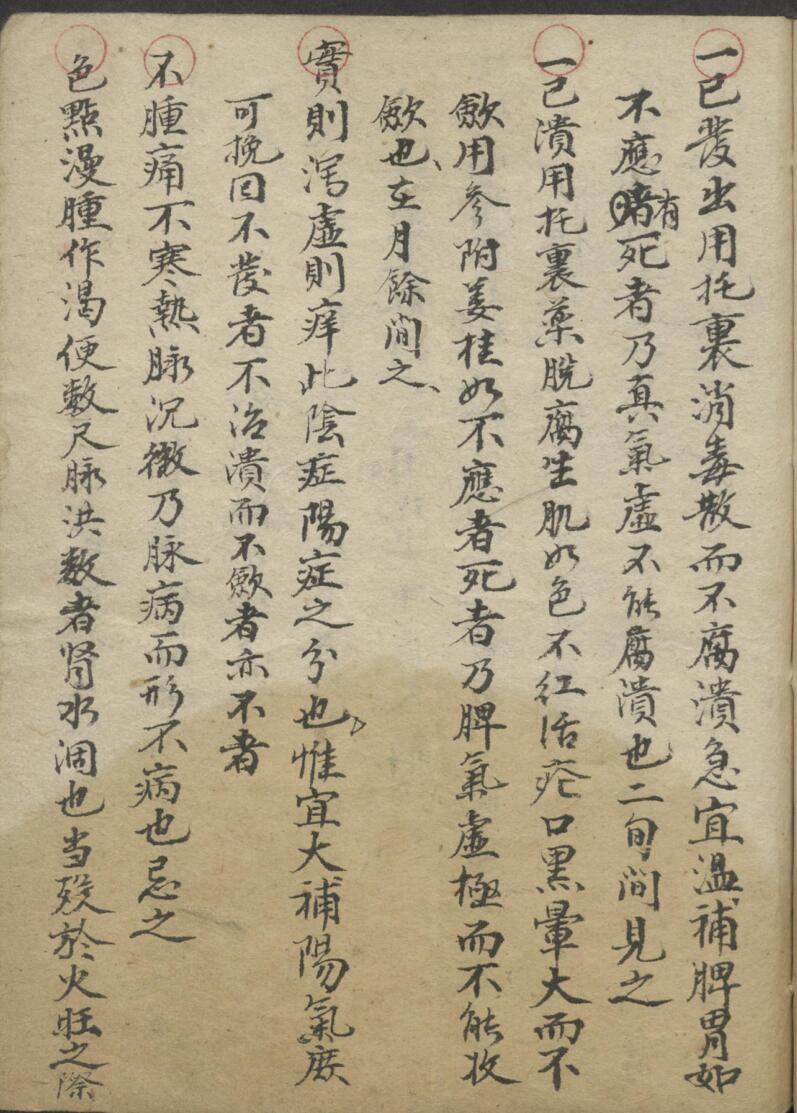 一已發出用托裏消毒散而不腐潰急宜温補脾胃如
不應有死者乃真氣虛不能腐潰也二旬間見之
一已潰用托裏藥脫腐生肌如色不红活瘡口黑暈大而不
歛用參附姜桂如不應者死者乃脾氣虛極而不能收
歛也、在月餘间之、
實則瀉虛則痒此陰症陽症之分也惟宜大補陽氣庶
可挽回不發者不治潰而不歛者亦不者
不腫痛不寒熱脉沉微乃脉病而形不病也忌之
色黯漫腫作渴便數尺脉洪数者肾水涸也当殁於火旺之際